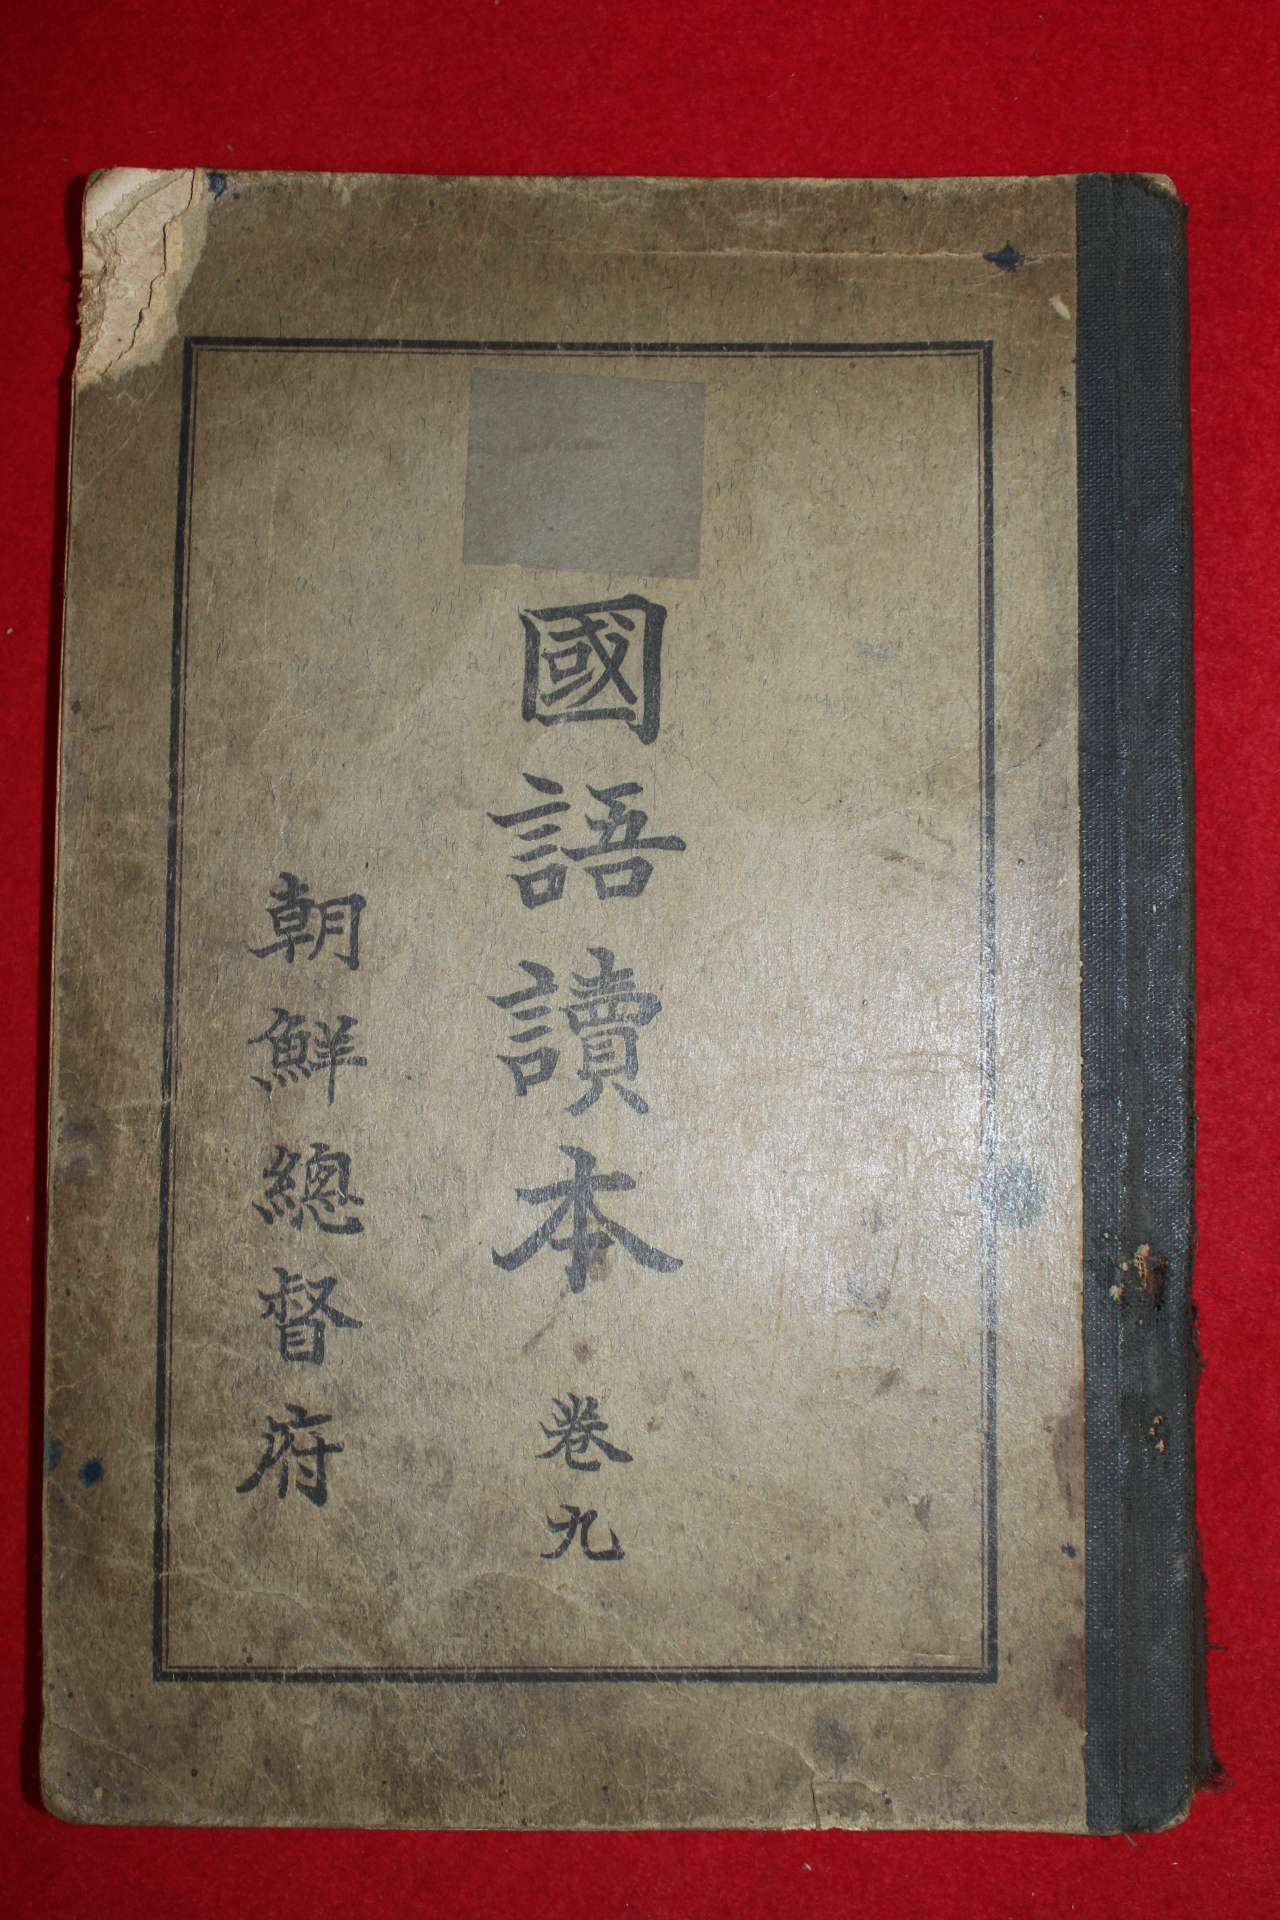 國語讀本 卷九
朝鮮總督府